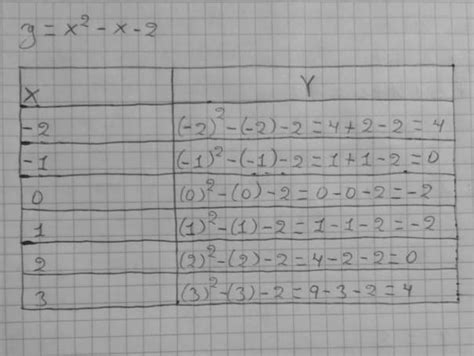 y = x² - x - 2
X Y
-2 (-2)² - (-2) - 2 = 4 + 2 - 2 = 4
-1 (-1)² - (-1) - 2 = 1 + 1 - 2 = 0
0 (0)² - (0) - 2 = 0 - 0 - 2 = -2
1 (1)² - (1) - 2 = 1 - 1 - 2 = -2
2 (2)² - (2) - 2 = 4 - 2 - 2 = 0
3 (3)² - (3) - 2 = 9 - 3 - 2 = 4